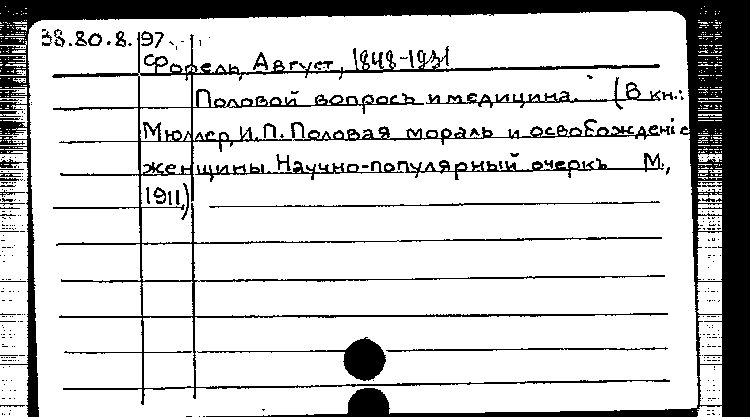 38.80.8.97
Форель, Август, 1848-1931
Половой вопросъ и медицина. (В кн.:
Мюллер, И.П. Половая мораль и освобожденіе
женщины. Научно-популярный очеркъ М.,
1911.)